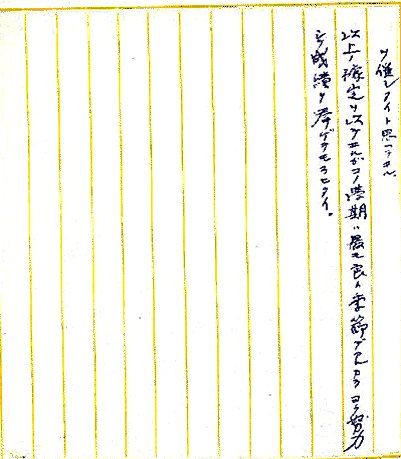 ヲ催シタイト思ッテヰル。
以上ノ豫定ヲ以テヰルガコノ學期ハ最モ良イ季節デアルカラヨク努力
シテ成績ヲ挙ゲテモラヒタイ。